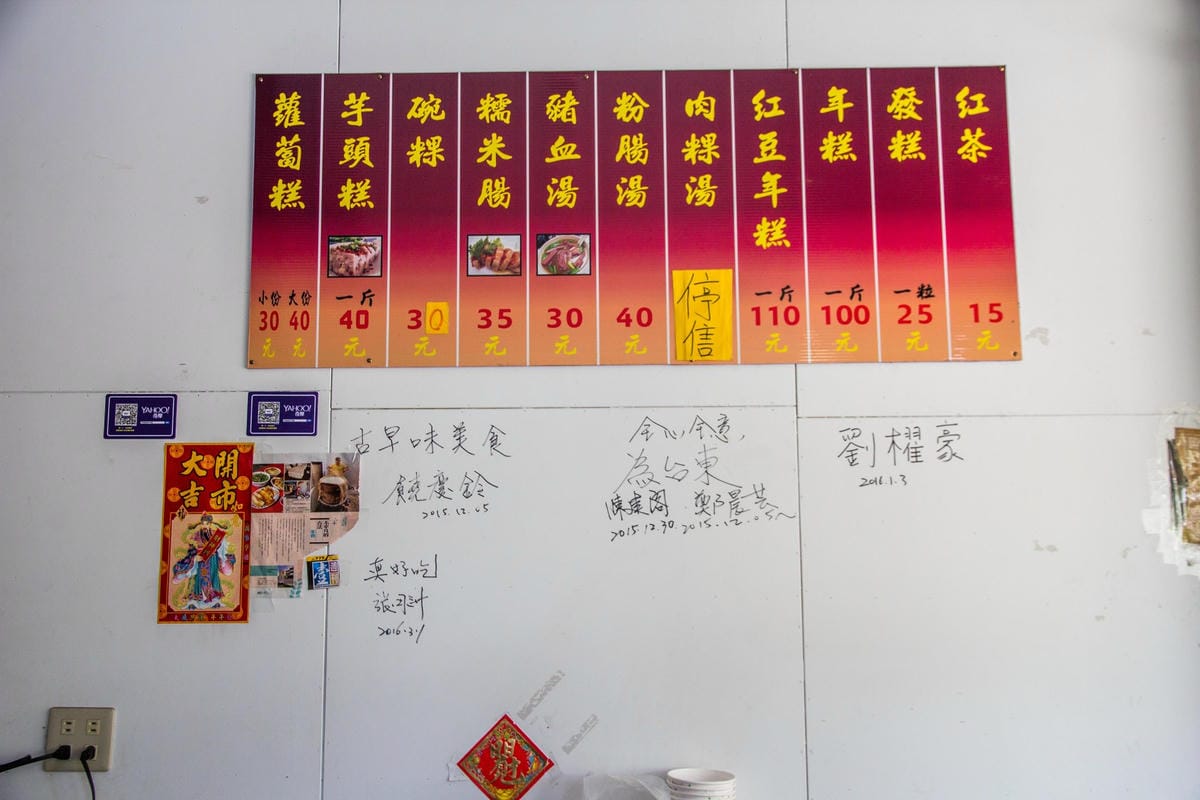 蘿蔔糕
小份 大份
30 40
元 元
芋頭糕
一斤
40
元
碗粿
30
元
糯米腸
35
元
豬血湯
30
元
粉腸湯
40
元
肉粿湯
停信
紅豆年糕
一斤
110
元
年糕
一斤
100
元
發糕
一粒
25
元
紅茶
15
元
YAHOO!
YAHOO!
開市
大吉
古早味美食
饒慶鈴
2015.12.05
真好吃
2016.3.1
全心全意,
為台東
2015.12.30.
鄭晨
2015.12.05
劉櫂豪
2016.1.3